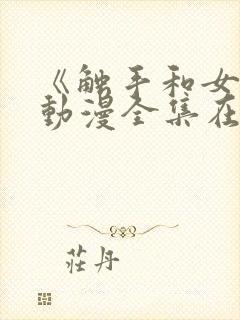 《触手和女
動漫全集在
莊丹